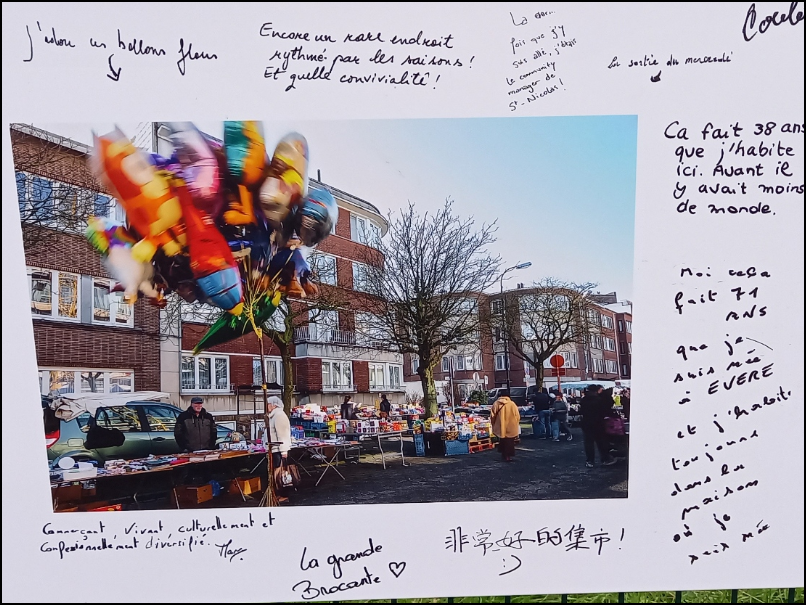 J'adore les ballons fleurs
Encore un rare endroit
rythmé par les saisons !
Et quelle convivialité !
La
fois que j'y
suis allé, j'étais
le community
manager de
St-Nicolas !
La sortie du mercredi
Ca fait 38 ans
que j'habite
ici. Avant il
y avait moins
de monde.
Moi cela
fait 71
ANS
que je
suis née
à EVERE
et j'habite
toujours
dans la
maison
où je
suis née
Commerçant, vivant, culturellement et
confessionnellement diversifié.
La grande
Brocante ♡
非常好的集市!
:)